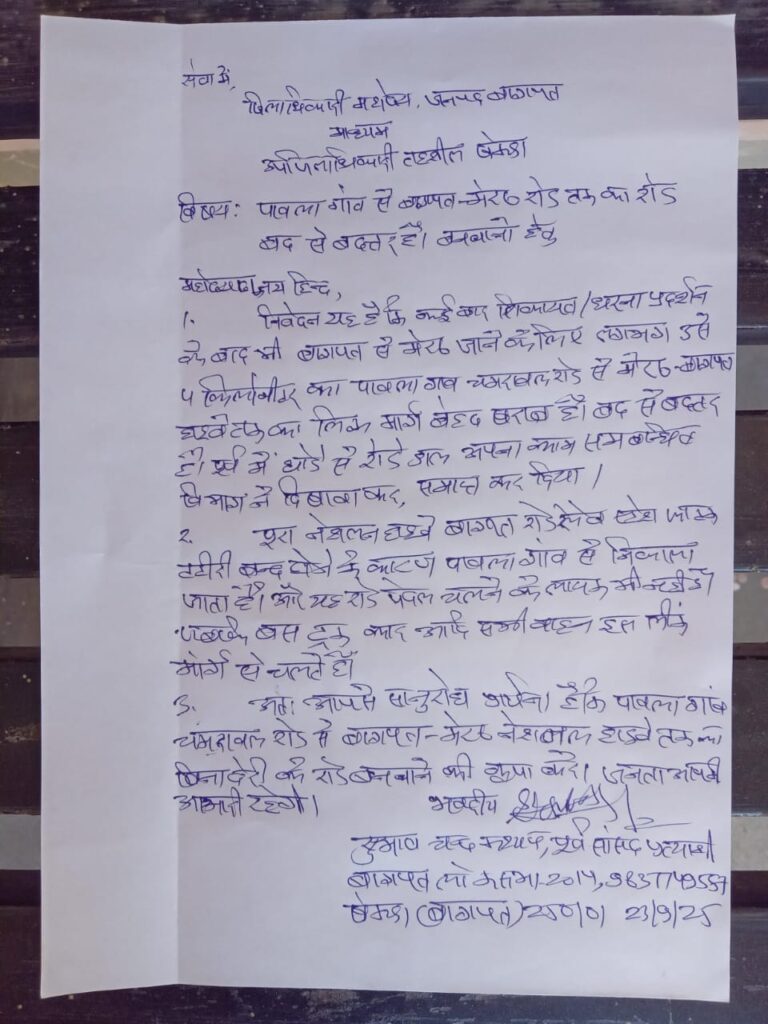 सेवा में,
जिलाधिकारी महोदय, जनपद बागपत
माध्यम
उपजिलाधिकारी तहसील खेकडा
विषय: पावला गांव से बागपत-मेरठ रोड तक का रोड
बद से बदत्तर है। बनवाने हेतु
महोदय जय हिन्द,
1. निवेदन यह है कि कई बार शिकायत/धरना प्रदर्शन
के बाद भी बागपत से मेरठ जाने के लिए लगभग 3 से
4 किलोमीटर का पावला गांव चमरावल रोड से मेरठ-बागपत
हाइवे तक का लिंक मार्ग बेहद खराब है। बद से बदत्तर
है। पूर्व में थोडे से रोडे डाल अपना काम सम्बन्धित
विभाग ने दिखावा कर, समाप्त कर दिया।
2. पूरा नेशनल हाइवे बागपत रोड रेलवे फाटक
टटीरी बन्द होने के कारण पावला गांव से निकाला
जाता है। और यह रोड पैदल चलने के लायक भी नहीं है।
जबकि बस ट्रक कार आदि सभी वाहन इस लिंक
मार्ग से चलते हैं।
3. अतः आपसे सानुरोध प्रार्थना है कि पावला गांव
चमरावल रोड से बागपत-मेरठ नेशनल हाइवे तक का
बिना देरी के रोड बनवाने की कृपा करें। जनता आपकी
आभारी रहेगी। भवदीय
सुभाष चन्द कश्यप, पूर्व सांसद प्रत्याशी
बागपत लोकसभा-2014,
खेकडा (बागपत) 250101 23/9/25